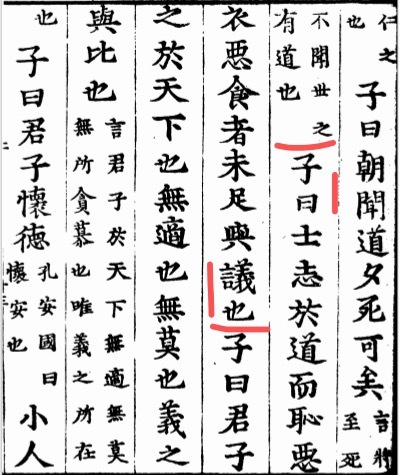 仁之也子曰朝聞道夕死可矣言將至死
不聞世之有道也子曰士志於道而恥悪
衣悪食者未足與議也子曰君子
之於天下也無適也無莫也義之
與比也言君子於天下無適無莫無所貪慕也唯義之所在
也子曰君子懷德孔安國曰懷安也小人